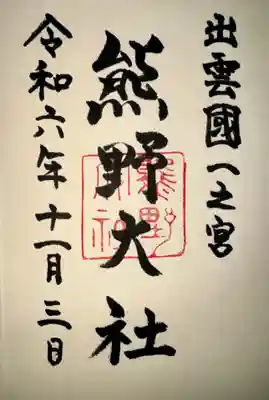 出雲國一之宮
熊野大社
令和六年十一月三日
熊野大社